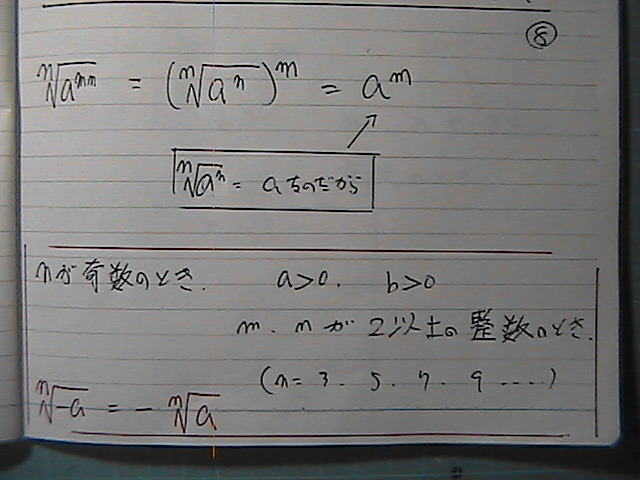 ⑧
ⁿ√a^mn = (ⁿ√a^n)^m = a^m
ⁿ√a^n = aなのだから
nが奇数のとき. a>0. b>0
m. nが2以上の整数のとき.
(n=3. 5. 7. 9 ....)
ⁿ√-a = - ⁿ√a